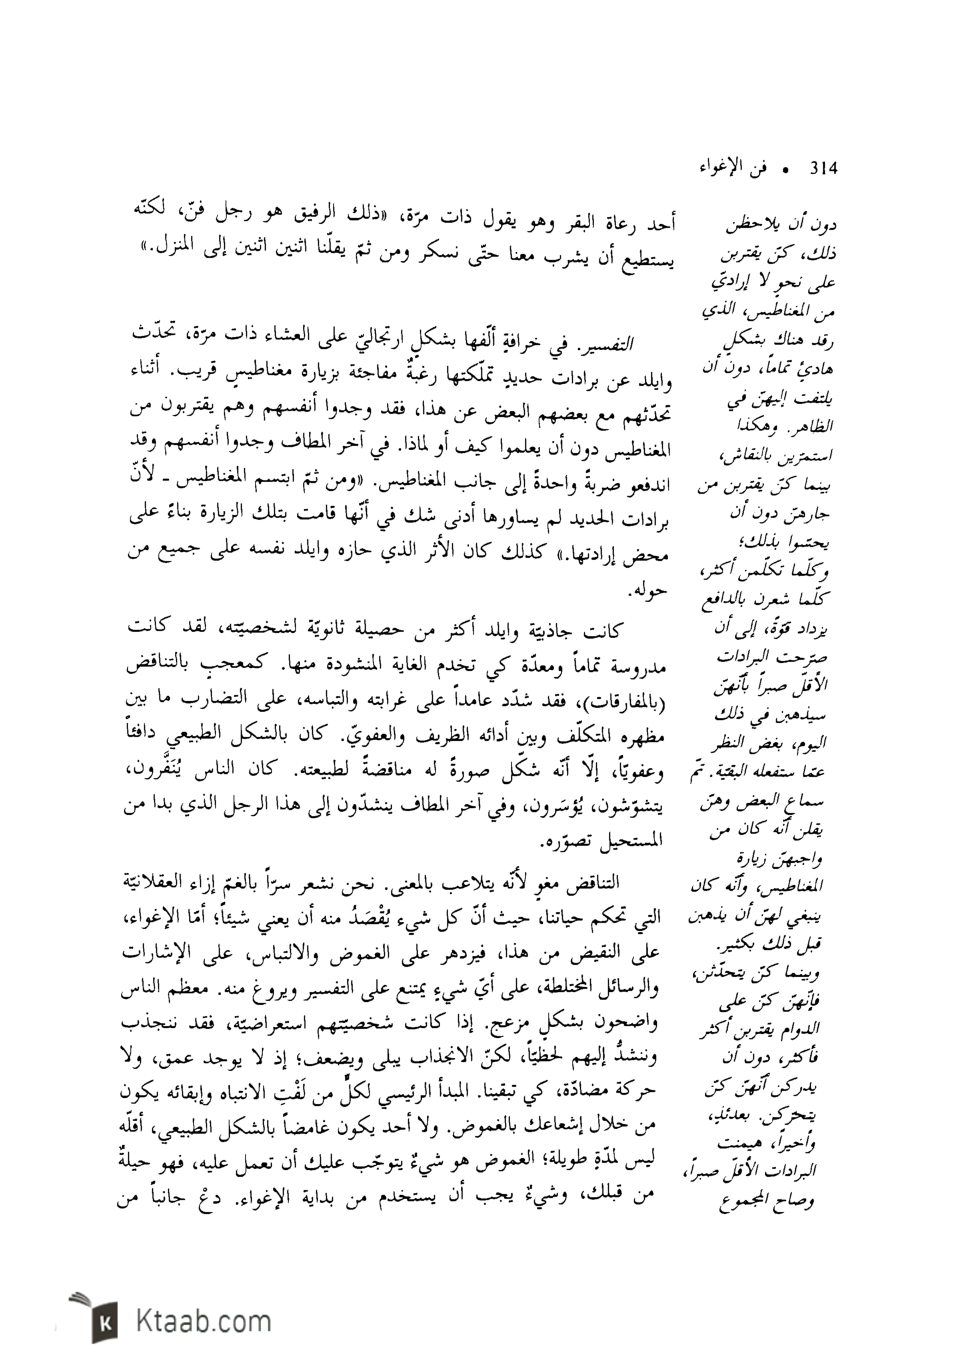 314 • فن الإغواء
أحد رعاة البقر وهو يقول ذات مرّة، «ذلك الرفيق هو رجل فنّ، لكنّه
يستطيع أن يشرب معنا حتّى نسكر ومن ثمّ يقلّنا اثنين اثنين إلى المنزل.»
التفسير. في خرافةٍ ألّفها بشكلٍ ارتجاليّ على العشاء ذات مرّة، تحدّث
وايلد عن برادات حديدٍ تملّكتها رغبةٌ مفاجئة بزيارة مغناطيسٍ قريب. أثناء
تحدّثهم مع بعضهم البعض عن هذا، فقد وجدوا أنفسهم وهم يقتربون من
المغناطيس دون أن يعلموا كيف أو لماذا. في آخر المطاف وجدوا أنفسهم وقد
اندفعو ضربةً واحدةً إلى جانب المغناطيس. «ومن ثمّ ابتسم المغناطيس ـ لأنّ
برادات الحديد لم يساورها أدنى شك في أنّها قامت بتلك الزيارة بناءً على
محض إرادتها.» كذلك كان الأثر الذي حازه وايلد نفسه على جميع من
حوله.
كانت جاذبيّة وايلد أكثر من حصيلة ثانويّة لشخصيّته، لقد كانت
مدروسة تماماً ومعدّة كي تخدم الغاية المنشودة منها. كمعجبٍ بالتناقض
(بالمفارقات)، فقد شدّد عامداً على غرابته والتباسه، على التضارب ما بين
مظهره المتكلّف وبين أدائه الظريف والعفويّ. كان بالشكل الطبيعي دافئاً
وعفويّاً، إلّا أنّه شكّل صورةً له مناقضةً لطبيعته. كان الناس يُنَفَّرون،
يتشوّشون، يُؤسَرون، وفي آخر المطاف ينشدّون إلى هذا الرجل الذي بدا من
المستحيل تصوّره.
التناقض مغوٍ لأنّه يتلاعب بالمعنى. نحن نشعر سرّاً بالغمّ إزاء العقلانيّة
التي تحكم حياتنا، حيث أنّ كل شيء يُقْصَدُ منه أن يعني شيئاً؛ أمّا الإغواء،
على النقيض من هذا، فيزدهر على الغموض والالتباس، على الإشارات
والرسائل المختلطة، على أيّ شيءٍ يمتنع على التفسير ويروغ منه. معظم الناس
واضحون بشكلٍ مزعج. إذا كانت شخصيّتهم استعراضيّة، فقد ننجذب
وننشدُّ إليهم لحظيّاً، لكنّ الانجذاب يبلى ويضعف؛ إذ لا يوجد عمق، ولا
حركة مضادّة، كي تبقينا. المبدأ الرئيسي لكلٍّ من لَفْتِ الانتباه وإبقائه يكون
من خلال إشعاعك بالغموض. ولا أحد يكون غامضاً بالشكل الطبيعي، أقلّه
ليس لمدّةٍ طويلة؛ الغموض هو شيءٌ يتوجّب عليك أن تعمل عليه، فهو حيلةٌ
من قبلك، وشيءٌ يجب أن يستخدم من بداية الإغواء. دعْ جانباً من
دون أن يلاحظن
ذلك، كنّ يقتربن
على نحوٍ لا إراديّ
من المغناطيس، الذي
رقد هناك بشكلٍ
هادئٍ تماماً، دون أن
يلتفت إليهنّ في
الظاهر. وهكذا
استمرّين بالنقاش،
بينما كنّ يقتربن من
جارهنّ دون أن
يحسّوا بذلك؛
وكلّما تكلّمن أكثر،
كلّما شعرن بالدافع
يزداد قوّةً، إلى أن
صرّحت البرادات
الأقلّ صبراً بأنّهنّ
سيذهبن في ذلك
اليوم، بغض النظر
عمّا ستفعله البقيّة. تمّ
سماع البعض وهنّ
يقلن أنّه كان من
واجبهنّ زيارة
المغناطيس، وأنّه كان
ينبغي لهنّ أن يذهبن
قبل ذلك بكثير.
وبينما كنّ يتحدّثن،
فإنّهنّ كنّ على
الدوام يقتربن أكثر
فأكثر، دون أن
يدركن أنّهنّ كنّ
يتحرّكن. بعدئذٍ،
وأخيراً، هيمنت
البرادات الأقلّ صبراً،
وصاح المجموع
Ktaab.com